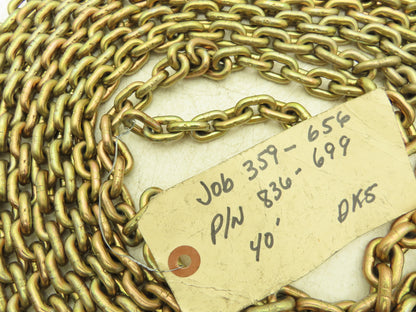 Job 359-656
P/N 836-699
40' DKS